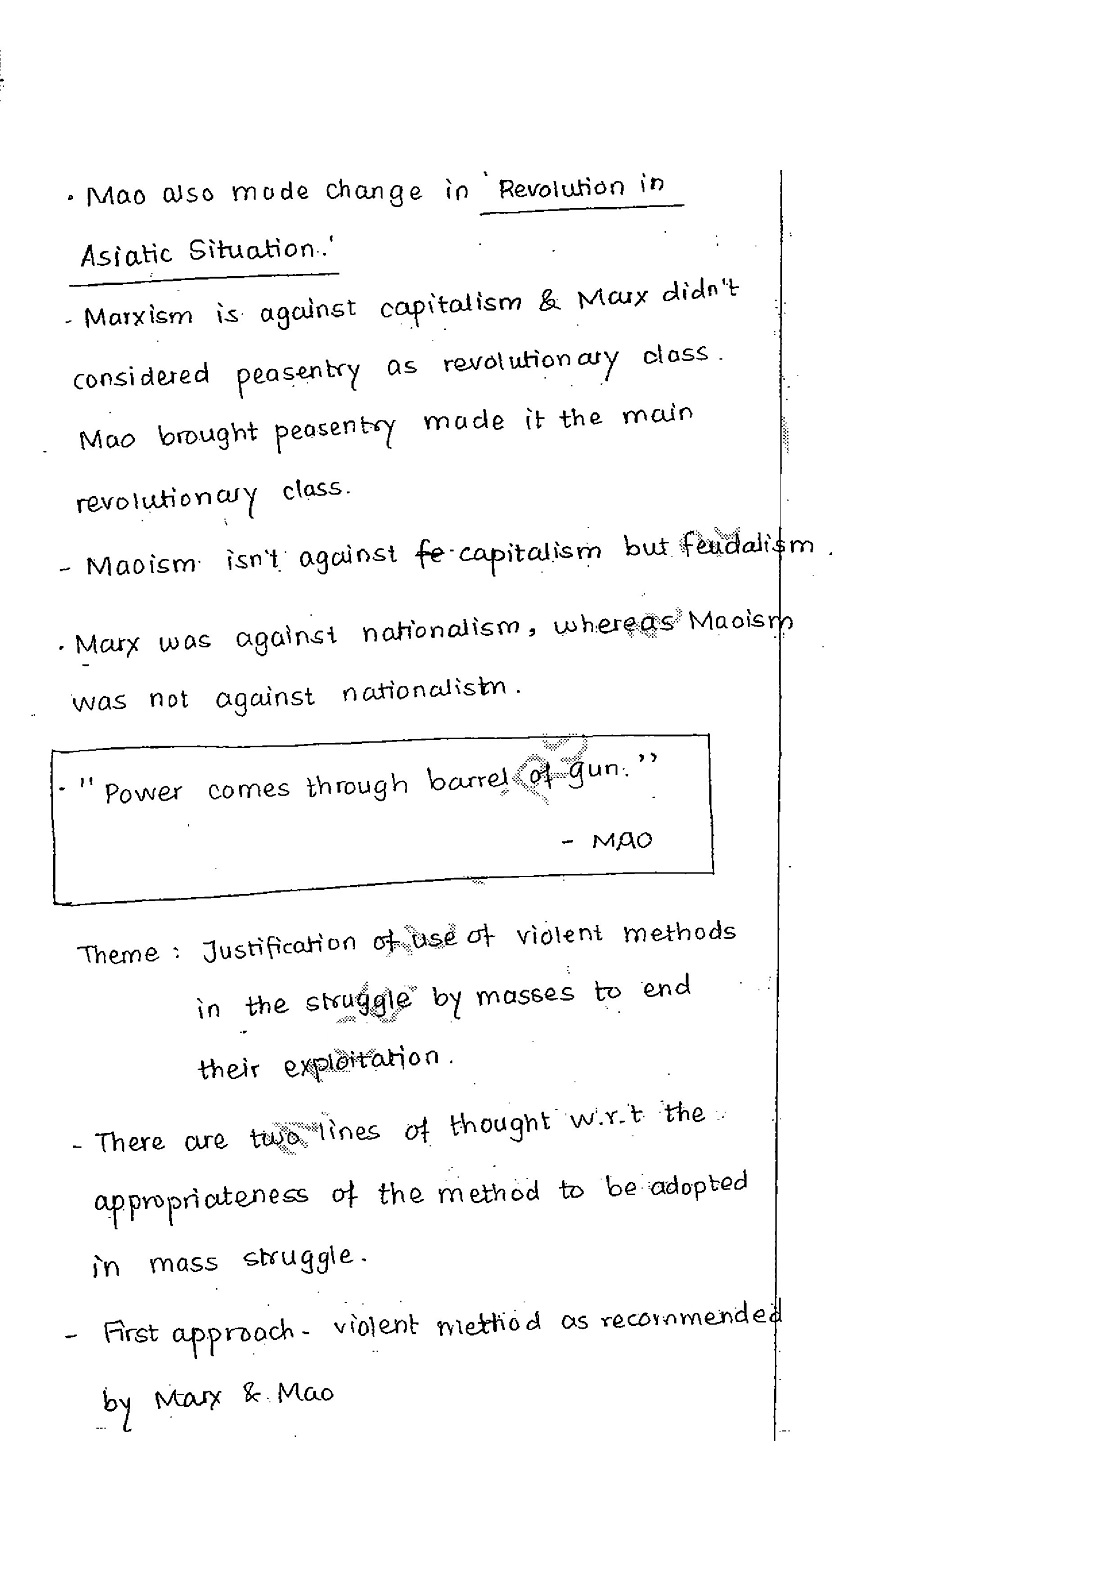 • Mao also made change in 'Revolution in
Asiatic Situation.'
- Marxism is against capitalism & Marx didn't
considered peasentry as revolutionary class.
Mao brought peasentry made it the main
revolutionary class.
- Maoism isn't against fe capitalism but feudalism.
• Marx was against nationalism, whereas Maoism
was not against nationalism.
• "Power comes through barrel of gun."
- MAO
Theme : Justification of use of violent methods
in the struggle by masses to end
their exploitation.
- There are two lines of thought w.r.t the
appropriateness of the method to be adopted
in mass struggle.
- First approach - violent method as recommended
by Marx & Mao